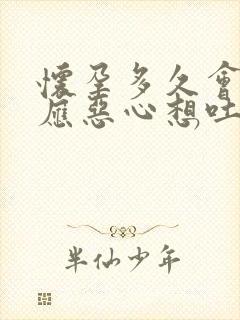 懷孕多久會
應惡心想吐
半仙少年